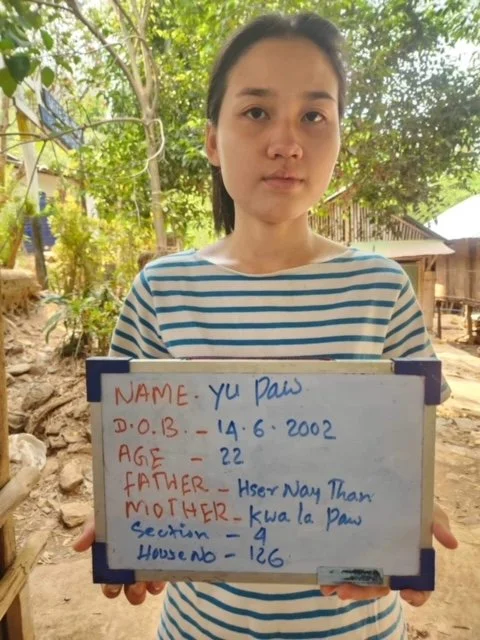 NAME. Yu Paw
D.O.B. - 14.6.2002
AGE - 22
FATHER - Hser Nay Than
MOTHER - Kwa la Paw
Section - 4
House No - 126